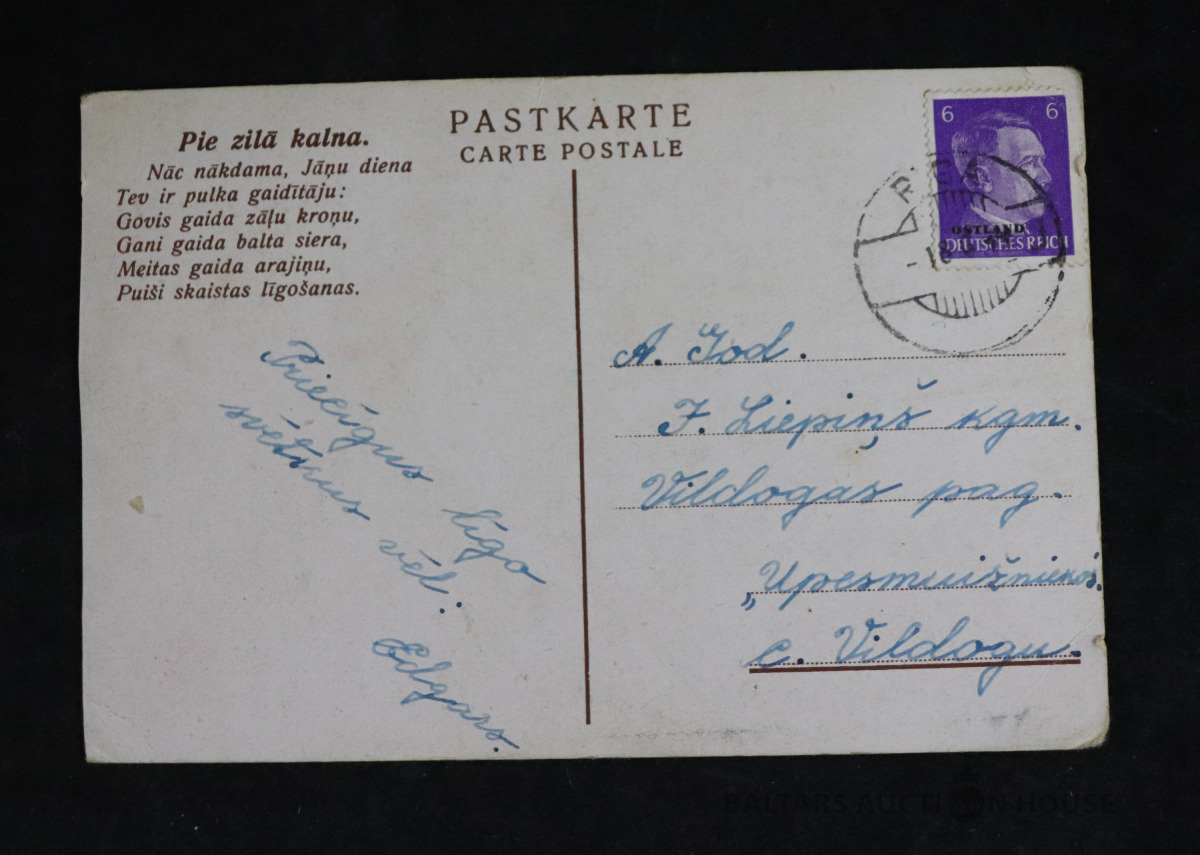 Pie zilā kalna.
Nāc nākdama, Jāņu diena
Tev ir pulka gaidītāju:
Govis gaida zāļu kroņu,
Gani gaida balta siera,
Meitas gaida arajiņu,
Puiši skaistas līgošanas.
PASTKARTE
CARTE POSTALE
6 6
OSTLAND
DEUTSCHES REICH
Priecīgus līgo
svētkus vēl:
Edgars.
A. God.
J. Liepiņš kgm.
Vildogas pag.
„Upesmuižniekos"
c. Vildogu.
BALTARS AUCTION HOUSE